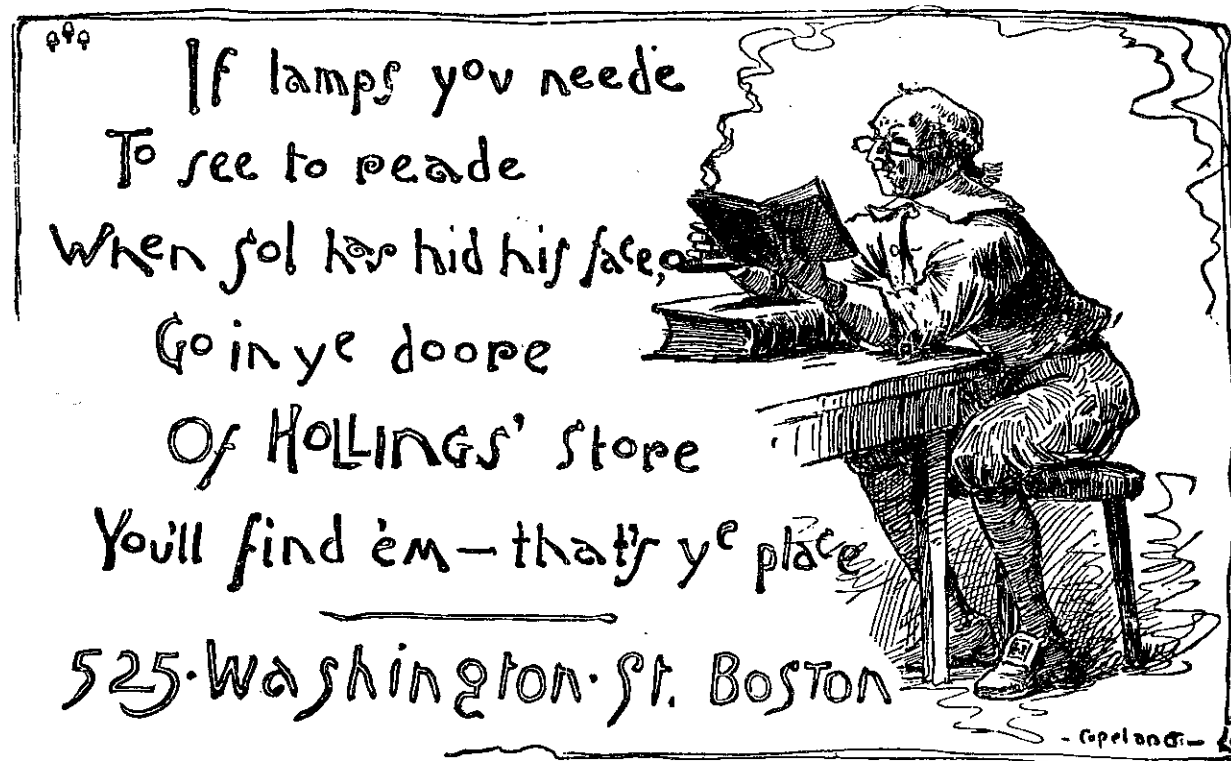 If lamps you neede
To see to reade
When sol has hid his face,
Go in ye doore
Of HOLLINGS' Store
You'll find 'em — that's ye place
525·Washington·St. BOSTON
- Copeland -